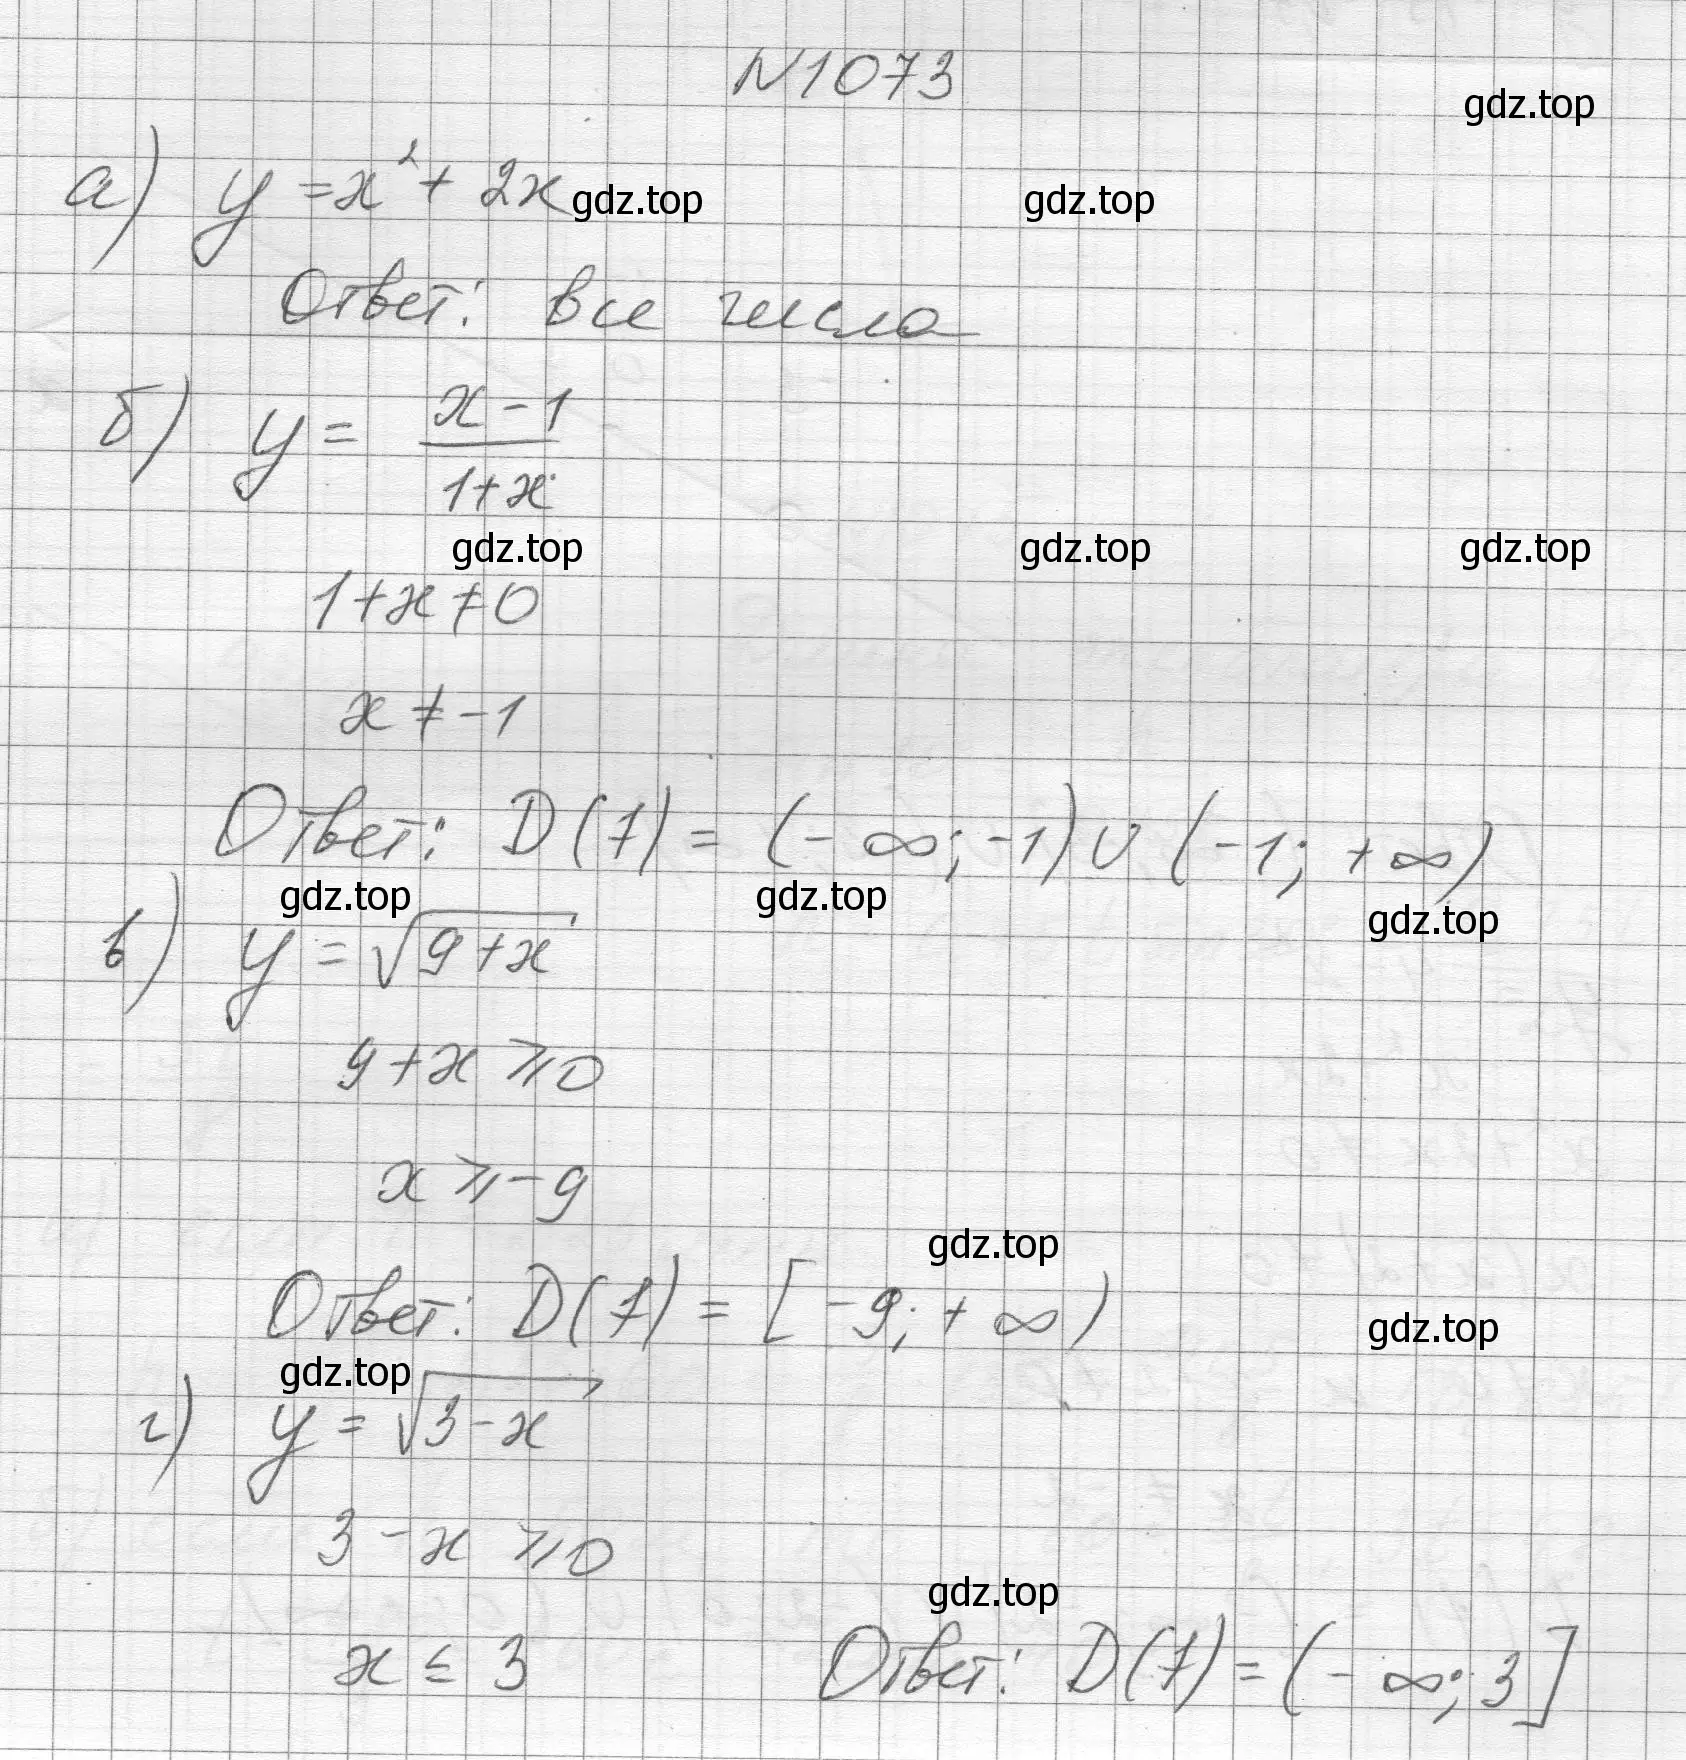 N1073
gdz.top
а) y = x² + 2x
gdz.top gdz.top
Ответ: все числа
б) y = (x - 1)/(1 + x)
gdz.top gdz.top gdz.top
1 + x ≠ 0
x ≠ -1
Ответ: D(f) = (-∞; -1) ∪ (-1; +∞)
gdz.top gdz.top gdz.top
в) y = √(9 + x)
9 + x ⩾ 0
x ⩾ -9
gdz.top
Ответ: D(f) = [-9; +∞)
gdz.top
gdz.top
г) y = √(3 - x)
3 - x ⩾ 0
gdz.top
x ≤ 3 Ответ: D(f) = (-∞; 3]